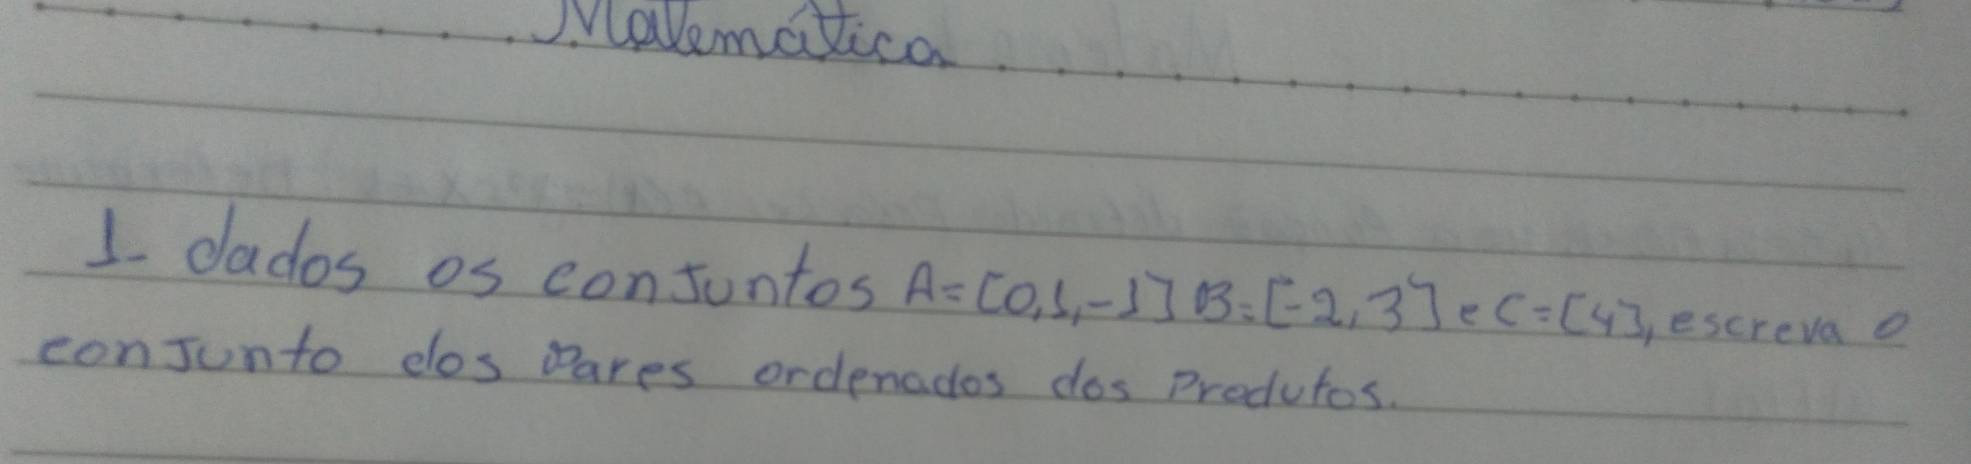 Matemática
1- dados os conjuntos A=[0,1,-1] B=[-2,3] e C=[4], escreva o
conjunto dos Pares ordenados dos Produtos.